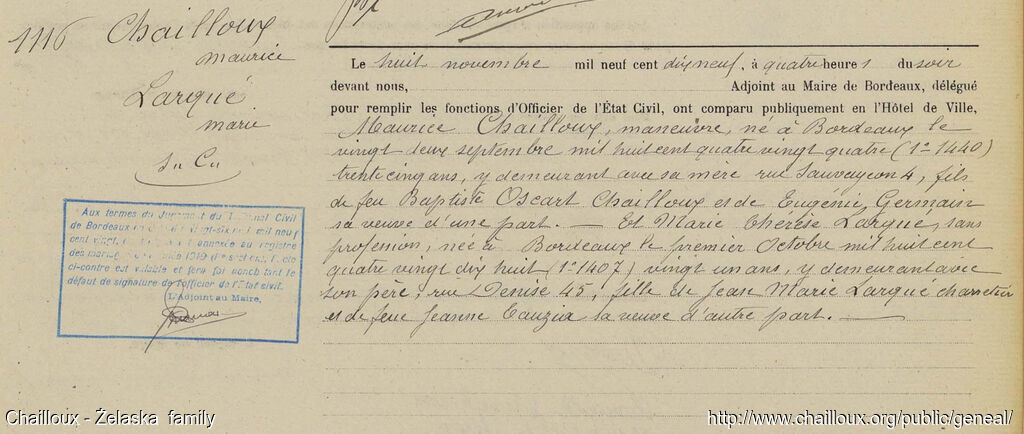 1116
Chailloux
maurice
Larqué
marie
Aux termes du Jugement du Tribunal Civil
de Bordeaux vingt-six mil neuf
cent vingt, annexée au registre
des mariages 1919
ci-contre est valable et fera foi nonobstant le
défaut de signature de l'officier de l'état civil.
L'Adjoint au Maire,
Le huit novembre mil neuf cent dix neuf, à quatre heures du soir
devant nous, Adjoint au Maire de Bordeaux, délégué
pour remplir les fonctions d'Officier de l'État Civil, ont comparu publiquement en l'Hôtel de Ville,
Maurice Chailloux, maneuvre, né à Bordeaux le
vingt deux septembre mil huit cent quatre vingt quatre (1º 1440)
trente cinq ans, y demeurant avec sa mère rue Sauvageon 4, fils
de feu Baptiste Oscart Chailloux et de Eugénie Germain
sa veuve d'une part. — Et Marie Thérèse Larqué, sans
profession, née à Bordeaux le premier Octobre mil huit cent
quatre vingt dix huit (1º 1407) vingt un ans, y demeurant avec
son père, rue Denise 45, fille de Jean Marie Larqué charretier
et de feue Jeanne Cauzia la veuve d'autre part. —
Chailloux - Żelaska family
http://www.chailloux.org/public/geneal/